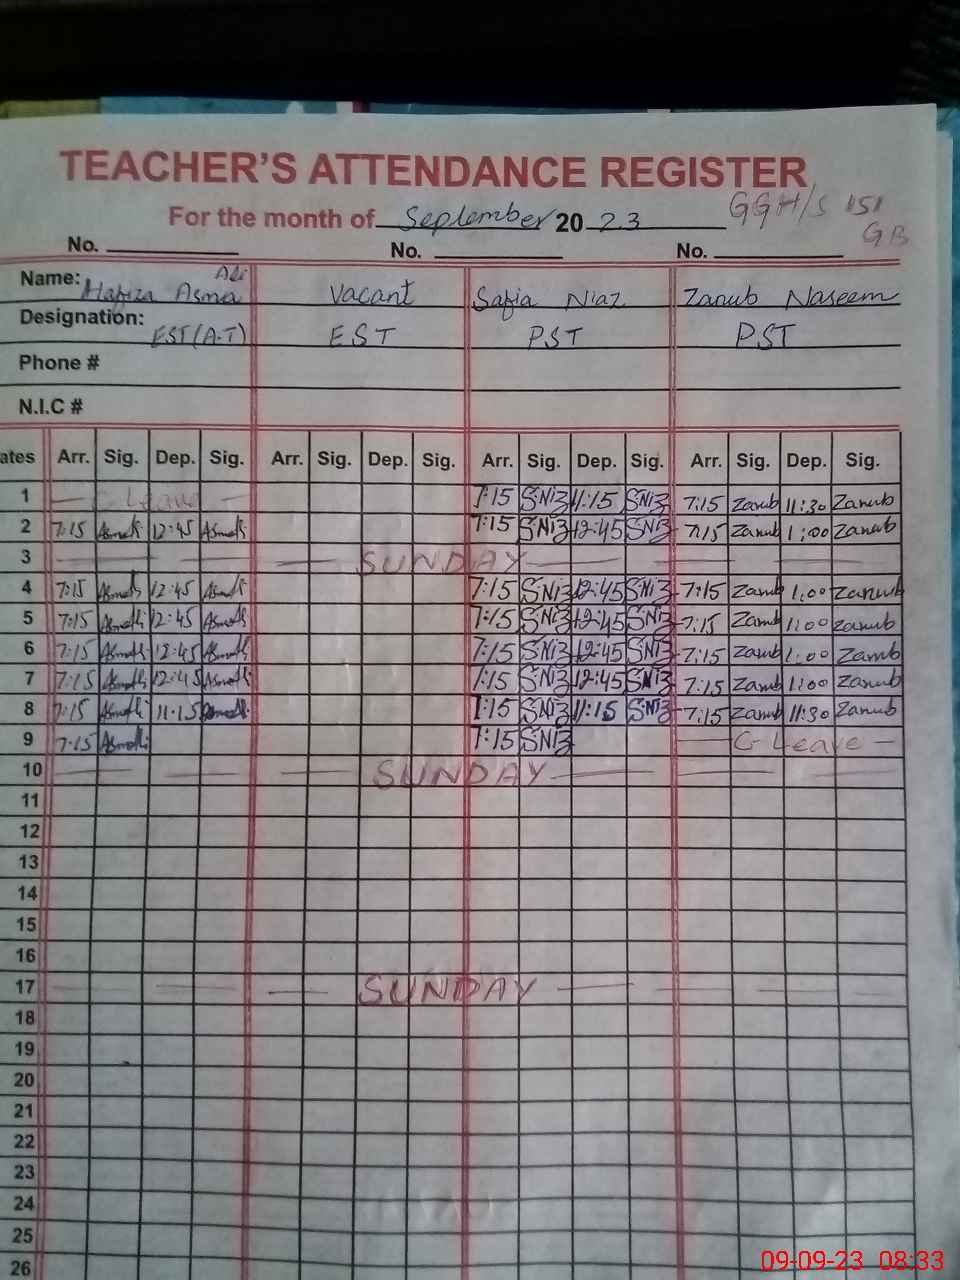 TEACHER'S ATTENDANCE REGISTER
For the month of September 20 23 GGH/S 151
GB
No. No. No.
Name: Hafiza Asma Ali Vacant Safia Niaz Zanub Naseem
Designation: EST(A.T) EST PST PST
Phone #
N.I.C #
ates Arr. Sig. Dep. Sig. Arr. Sig. Dep. Sig. Arr. Sig. Dep. Sig. Arr. Sig. Dep. Sig.
1 C Leave 7:15 SNiz 11:15 SNiz 7:15 Zanub 11:30 Zanub
2 7:15 12:45 7:15 SNiz 12:45 SNiz 7:15 Zanub 1:00 Zanub
3 SUNDAY
4 7:15 12:45 7:15 SNiz 12:45 SNiz 7:15 Zanub 1:00 Zanub
5 7:15 12:45 7:15 SNiz 12:45 SNiz 7:15 Zanub 1:00 Zanub
6 7:15 12:45 7:15 SNiz 12:45 SNiz 7:15 Zanub 1:00 Zanub
7 7:15 12:45 7:15 SNiz 12:45 SNiz 7:15 Zanub 1:00 Zanub
8 7:15 11:15 7:15 SNiz 11:15 SNiz 7:15 Zanub 11:30 Zanub
9 7:15 7:15 SNiz C Leave
10 SUNDAY
11
12
13
14
15
16
17 SUNDAY
18
19
20
21
22
23
24
25
26
09-09-23 08:33